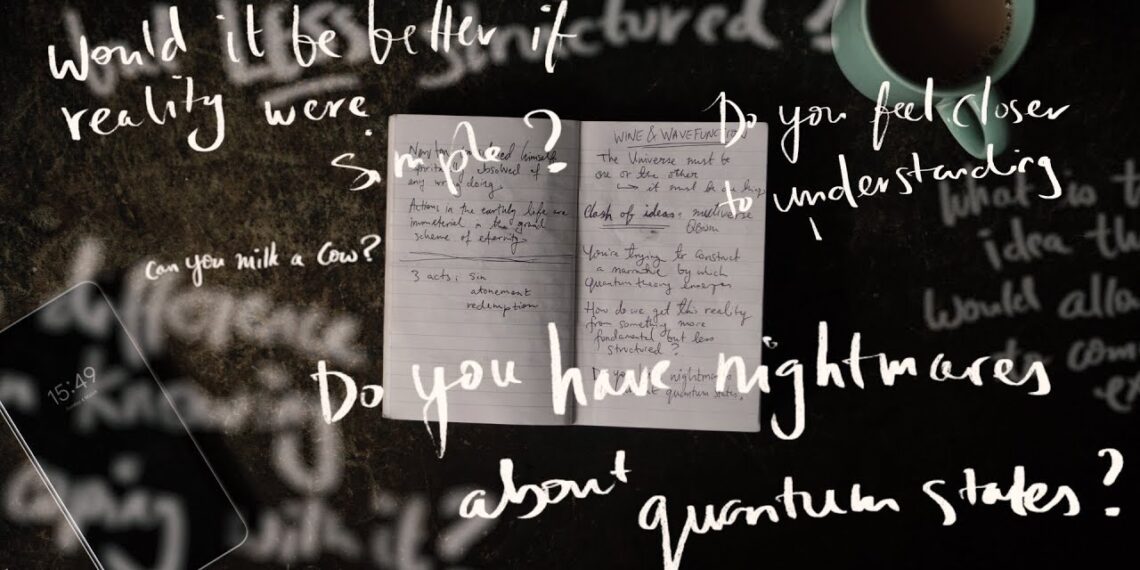 Would it be better if
reality were
simple?
Do you feel closer
to understanding
can you milk a cow?
Do you have nightmares
about quantum states?
any wrongdoing
Actions in the earthly life are
immaterial in the grand
scheme of eternity
3 acts: sin
atonement
redemption
WINE & WAVEFUNCTION
The Universe must be
one or the other
it must be
Clash of ideas: multiverse
QBism
You're trying to construct
a narrative by which
quantum theory emerges
How do we get this reality
from something more
fundamental but less
structured?
nightmares
quantum states?
less structured?
difference
knowing
with it?
What is
idea
would
15:49